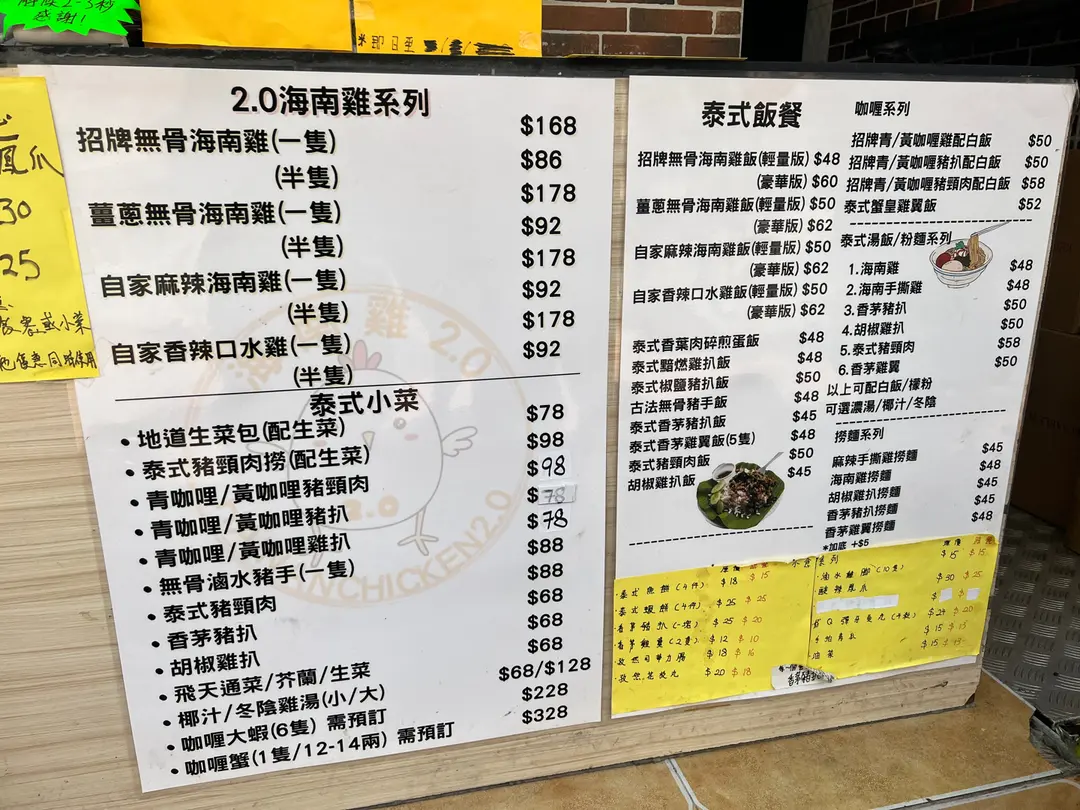 感謝!
*即日至
鳳爪
30
25
2.0海南雞系列
招牌無骨海南雞(一隻) $168
(半隻) $86
薑蔥無骨海南雞(一隻) $178
(半隻) $92
自家麻辣海南雞(一隻) $178
(半隻) $92
自家香辣口水雞(一隻) $178
(半隻) $92
泰式小菜
•地道生菜包(配生菜) $78
•泰式豬頸肉撈(配生菜) $98
•青咖哩/黃咖哩豬頸肉 $98
•青咖哩/黃咖哩豬扒 $78
•青咖哩/黃咖哩雞扒 $78
•無骨滷水豬手(一隻) $88
•泰式豬頸肉 $88
•香茅豬扒 $68
•胡椒雞扒 $68
•飛天通菜/芥蘭/生菜 $68
•椰汁/冬陰雞湯(小/大) $68/$128
•咖喱大蝦(6隻) 需預訂 $228
•咖喱蟹(1隻/12-14兩) 需預訂 $328
雞 2.0
2.0
NCHICKEN2.0
泰式飯餐
招牌無骨海南雞飯(輕量版) $48
(豪華版) $60
薑蔥無骨海南雞飯(輕量版) $50
(豪華版) $62
自家麻辣海南雞飯(輕量版) $50
(豪華版) $62
自家香辣口水雞飯(輕量版) $50
(豪華版) $62
泰式香葉肉碎煎蛋飯 $48
泰式黯燃雞扒飯 $48
泰式椒鹽豬扒飯 $50
古法無骨豬手飯 $48
泰式香茅豬扒飯 $45
泰式香茅雞翼飯(5隻) $48
泰式豬頸肉飯 $50
胡椒雞扒飯 $45
咖喱系列
招牌青/黃咖喱雞配白飯 $50
招牌青/黃咖喱豬扒配白飯 $50
招牌青/黃咖喱豬頸肉配白飯 $58
泰式蟹皇雞翼飯 $52
泰式湯飯/粉麵系列
1.海南雞 $48
2.海南手撕雞 $48
3.香茅豬扒 $50
4.胡椒雞扒 $50
5.泰式豬頸肉 $58
6.香茅雞翼 $50
以上可配白飯/檬粉
可選濃湯/椰汁/冬陰
撈麵系列
麻辣手撕雞撈麵 $45
海南雞撈麵 $48
胡椒雞扒撈麵 $45
香茅豬扒撈麵 $45
香茅雞翼撈麵 $48
*加底 +$5
小食系列
·泰式魚餅(4件) $18 $15
·泰式蝦餅(4件) $25 $25
·香茅豬扒(一塊) $25 $20
·香茅雞翼(2隻) $12 $10
$18 $16
$20 $18
·滷水雞腳(10隻) $15 $15
·酸辣鳳爪 $30 $25
$24 $20
$15 $15
·油菜 $15 $15